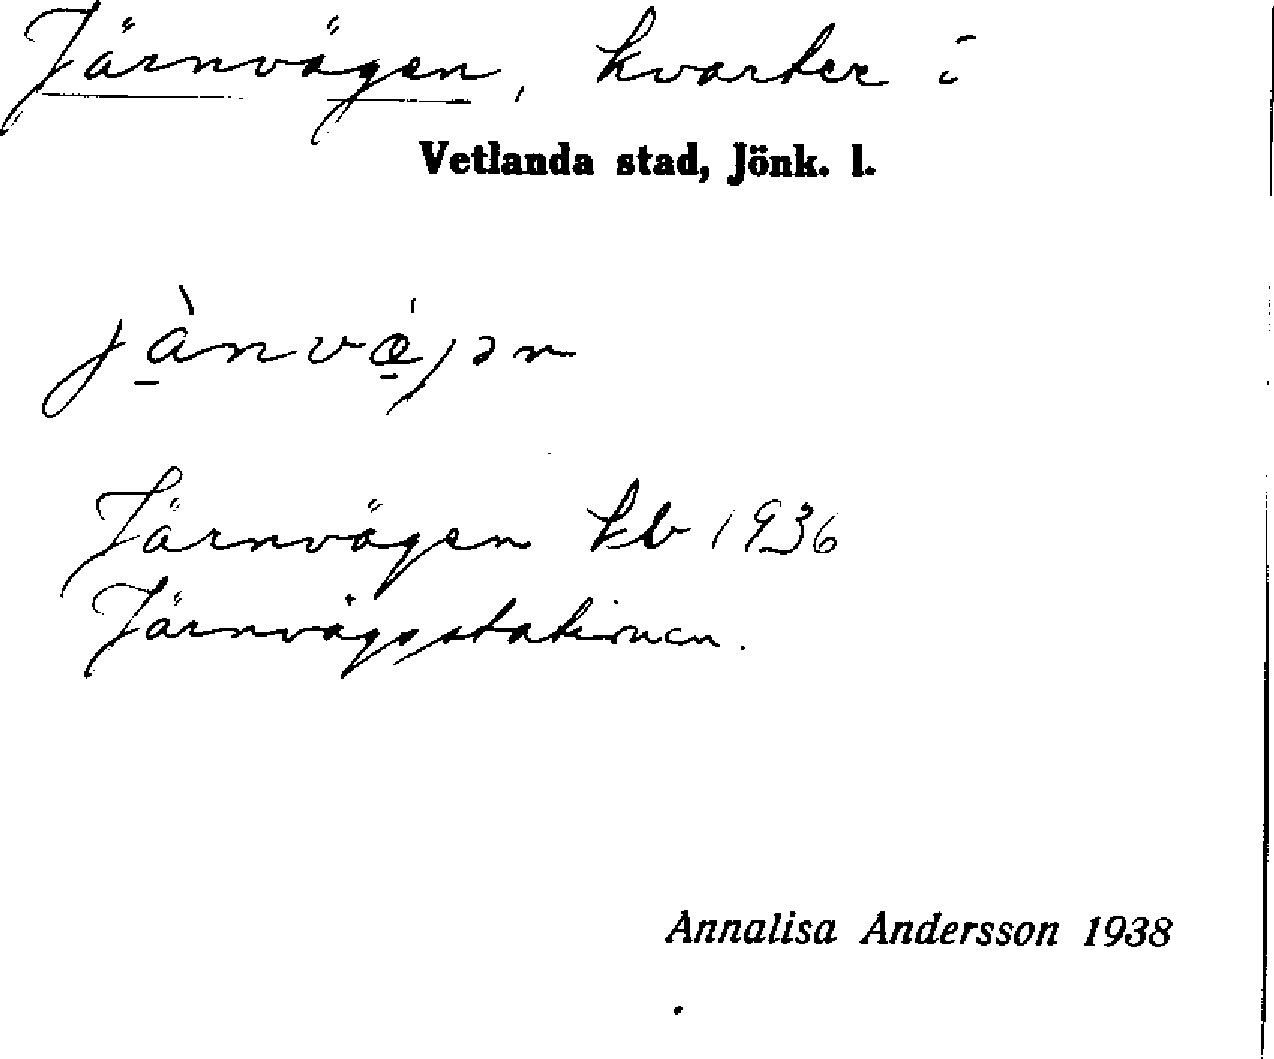 Järnvägen, kvarter i
Vetlanda stad, Jönk. l.
jànvǽjən
Järnvägen kb 1936
Järnvägsstationen.
Annalisa Andersson 1938